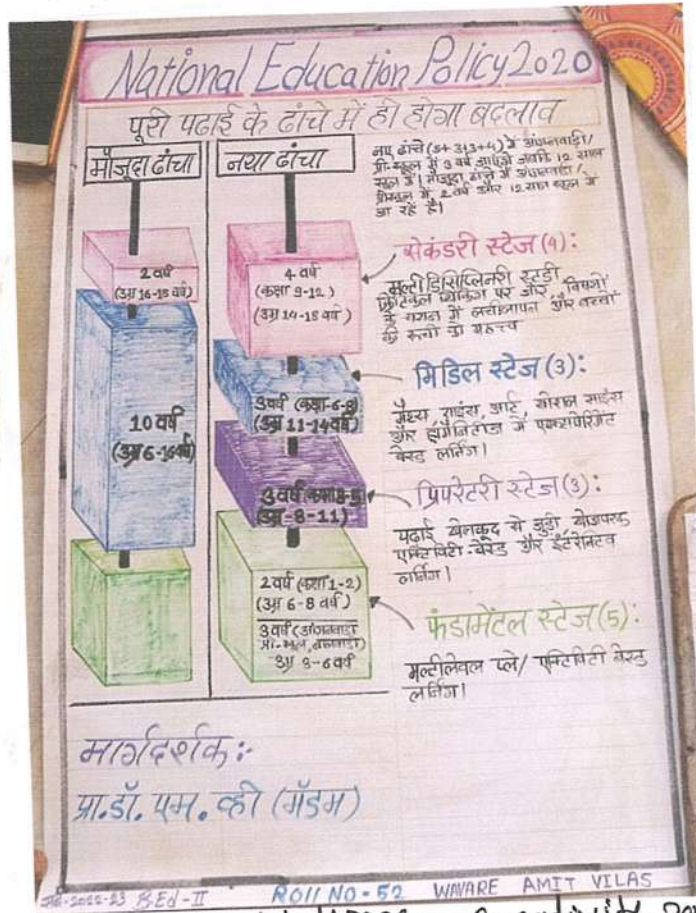 National Education Policy 2020
पूरी पढाई के ढांचे में ही होगा बदलाव
मौजूदा ढांचा
नया ढांचा
नए ढांचे (5+3+3+4) में आंगनवाडी/
प्री-स्कूल में 3 वर्ष जबकि 12 साल
स्कूल में। मौजूदा ढांचे में आंगनवाडी/
प्रीस्कूल में 2 वर्ष और 12 साल स्कूल में
आ रहे है।
2 वर्ष
(उम्र 16-18 वर्ष)
10 वर्ष
(उम्र 6-16 वर्ष)
4 वर्ष
(कक्षा 9-12)
(उम्र 14-18 वर्ष)
3 वर्ष (कक्षा-6-8)
(उम्र 11-14 वर्ष)
3 वर्ष (कक्षा 3-5)
(उम्र-8-11)
2 वर्ष (कक्षा 1-2)
(उम्र 6-8 वर्ष)
3 वर्ष (आंगनवाडी
उम्र 3-6 वर्ष
सेकंडरी स्टेज (4):
मल्टीडिसिप्लिनरी स्टडी
क्रिटिकल थिंकिंग पर जोर, विषयों
के चयन में लचीलापन और बच्चों
की रूची को महत्त्व
मिडिल स्टेज (3):
मैथ्स, साइंस, आर्ट, सोशल साइंस
और ह्युमैनिटीज में एक्सपेरिमेंट
बेस्ड लर्निंग।
प्रिपरेटरी स्टेज (3):
पढाई खेलकूद से जुडी,
एक्टिविटी-बेस्ड और इंटरेक्टिव
लर्निंग।
फंडामेंटल स्टेज (5):
मल्टीलेवल प्ले/ एक्टिविटी बेस्ड
लर्निंग।
मार्गदर्शक:-
प्रा.डॉ. एम. व्ही (मॅडम)
-2022-23 B.Ed-II ROll NO-52 WAVARE AMIT VILAS